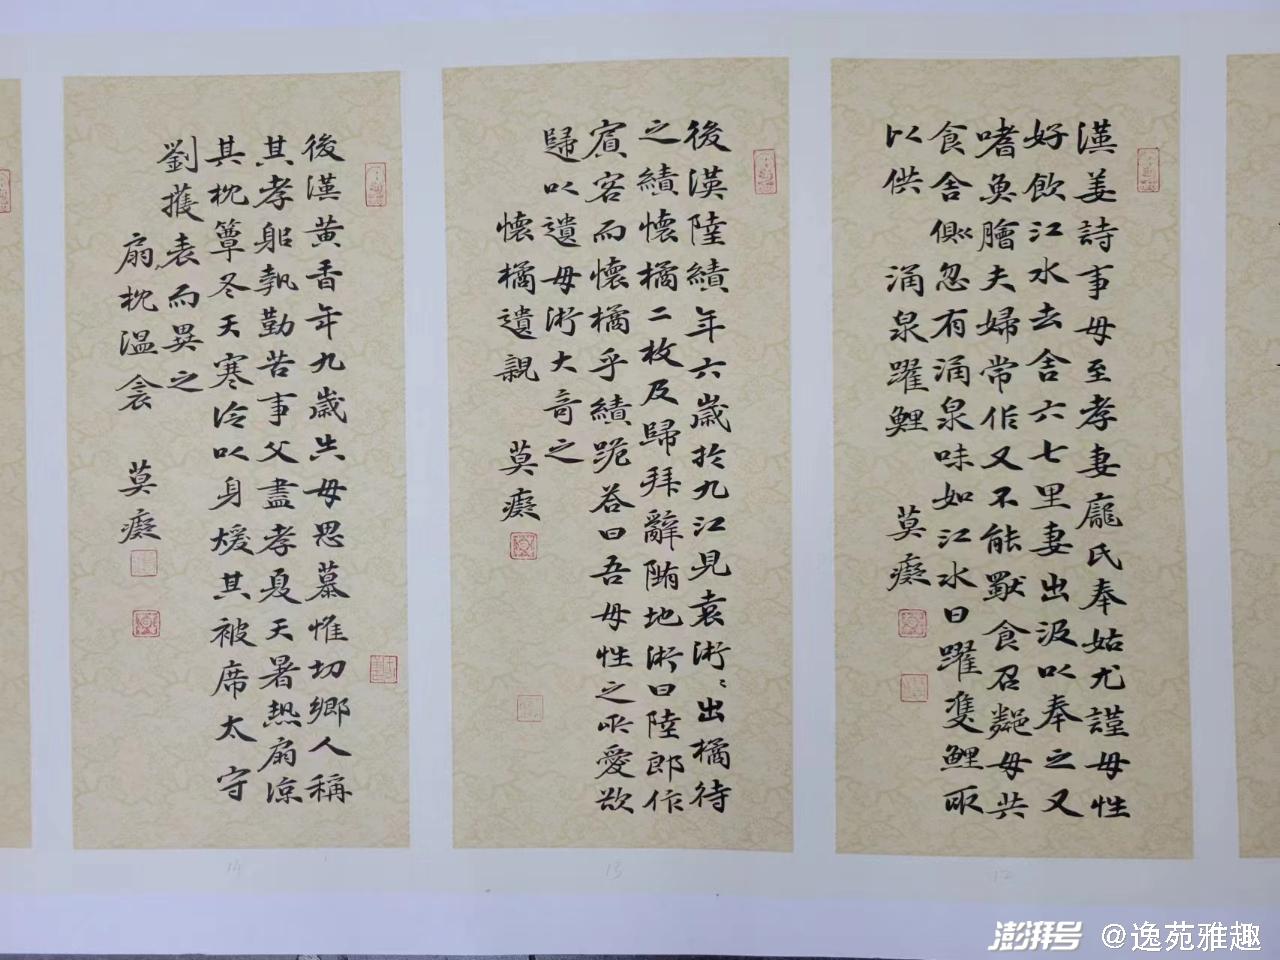 漢姜詩事母至孝妻龐氏奉姑尤謹母性
好飲江水去舍六七里妻出汲以奉之又
嗜魚膾夫婦常作又不能獸食召鄰母共
食舍側忽有涌泉味如江水日躍隻鯉取
以供
涌泉躍鯉
莫癡
後漢陸績年六歲於九江見袁術〻出橘待
之績懷橘二枚及歸拜辭隋地術曰陸郎作
賓客而懷橘乎績跪答曰吾母性之所愛欲
歸以遺母術大奇之
懷橘遺親
莫癡
後漢黃香年九歲失母思慕惟切鄉人稱
其孝躬執勤苦事父盡孝夏天暑熱扇涼
其枕簟冬天寒冷以身煖其被席太守
劉護表而異之
扇枕溫衾
莫癡
14
13
12
澎湃号 @逸苑雅趣